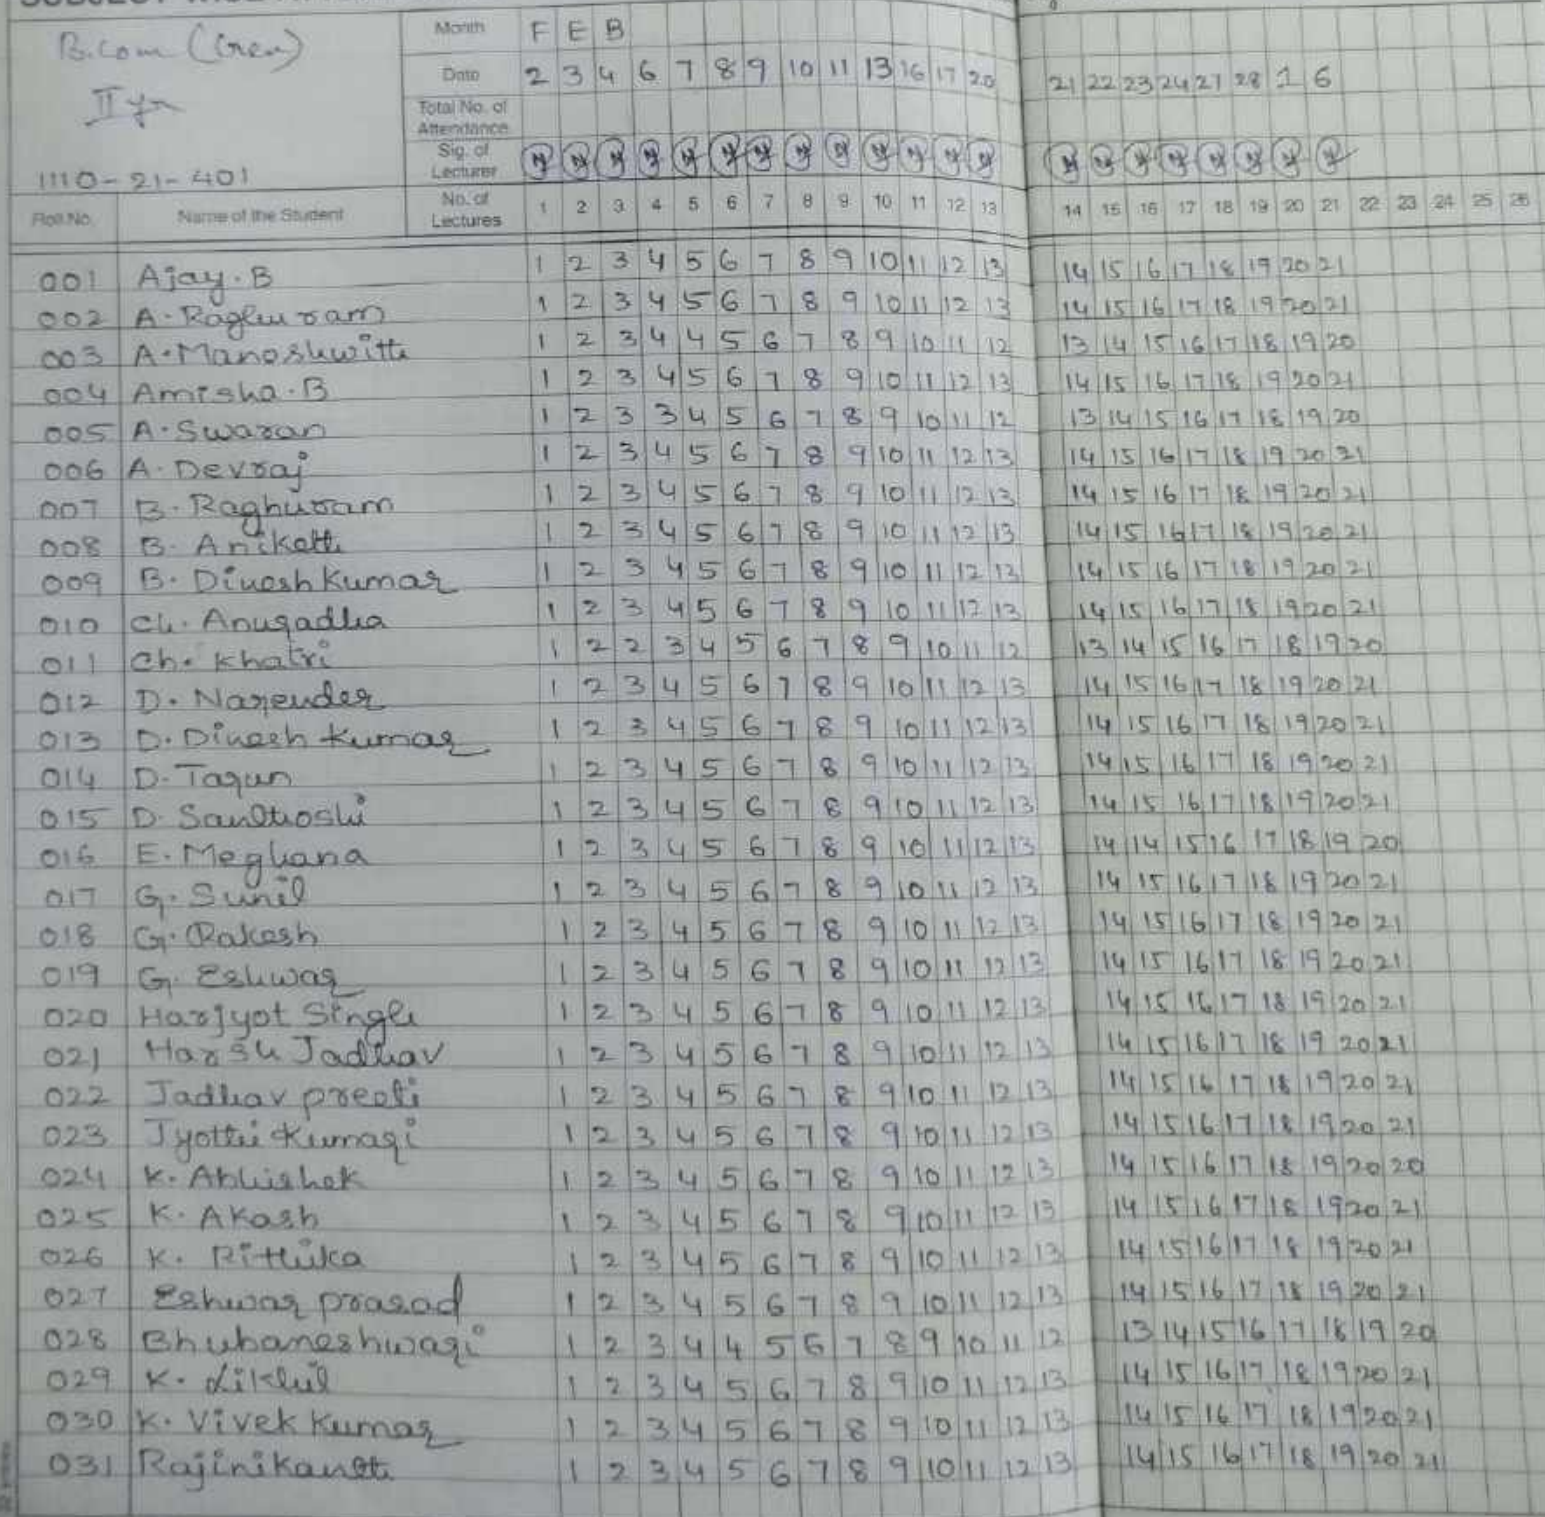 B.Com (Gen)
II yr
1110-21-401
Month F E B
Date 2 3 4 6 7 8 9 10 11 13 16 17 20 21 22 23 24 27 28 1 6
Total No. of Attendance
Sig. of Lecturer
Roll No. Name of the Student No. of Lectures 1 2 3 4 5 6 7 8 9 10 11 12 13 14 15 16 17 18 19 20 21 22 23 24 25 26
001 Ajay.B 1 2 3 4 5 6 7 8 9 10 11 12 13 14 15 16 17 18 19 20 21
002 A.Raghuram 1 2 3 4 5 6 7 8 9 10 11 12 13 14 15 16 17 18 19 20 21
003 A.Manoshwitti 1 2 3 4 4 5 6 7 8 9 10 11 12 13 14 15 16 17 18 19 20
004 Amisha.B 1 2 3 4 5 6 7 8 9 10 11 12 13 14 15 16 17 18 19 20 21
005 A.Swaran 1 2 3 3 4 5 6 7 8 9 10 11 12 13 14 15 16 17 18 19 20
006 A.Devraj 1 2 3 4 5 6 7 8 9 10 11 12 13 14 15 16 17 18 19 20 21
007 B.Raghuram 1 2 3 4 5 6 7 8 9 10 11 12 13 14 15 16 17 18 19 20 21
008 B.Aniketh 1 2 3 4 5 6 7 8 9 10 11 12 13 14 15 16 17 18 19 20 21
009 B.Dinesh Kumar 1 2 3 4 5 6 7 8 9 10 11 12 13 14 15 16 17 18 19 20 21
010 Ch.Anuradha 1 2 3 4 5 6 7 8 9 10 11 12 13 14 15 16 17 18 19 20 21
011 Ch.Khatri 1 2 2 3 4 5 6 7 8 9 10 11 12 13 14 15 16 17 18 19 20
012 D.Narender 1 2 3 4 5 6 7 8 9 10 11 12 13 14 15 16 17 18 19 20 21
013 D.Dinesh Kumar 1 2 3 4 5 6 7 8 9 10 11 12 13 14 15 16 17 18 19 20 21
014 D.Tarun 1 2 3 4 5 6 7 8 9 10 11 12 13 14 15 16 17 18 19 20 21
015 D.Santhoshi 1 2 3 4 5 6 7 8 9 10 11 12 13 14 15 16 17 18 19 20 21
016 E.Meghana 1 2 3 4 5 6 7 8 9 10 11 12 13 14 14 15 16 17 18 19 20
017 G.Sunil 1 2 3 4 5 6 7 8 9 10 11 12 13 14 15 16 17 18 19 20 21
018 G.Rakesh 1 2 3 4 5 6 7 8 9 10 11 12 13 14 15 16 17 18 19 20 21
019 G.Eshwar 1 2 3 4 5 6 7 8 9 10 11 12 13 14 15 16 17 18 19 20 21
020 Harjyot Singh 1 2 3 4 5 6 7 8 9 10 11 12 13 14 15 16 17 18 19 20 21
021 Harsh Jadhav 1 2 3 4 5 6 7 8 9 10 11 12 13 14 15 16 17 18 19 20 21
022 Jadhav preeti 1 2 3 4 5 6 7 8 9 10 11 12 13 14 15 16 17 18 19 20 21
023 Jyothi Kumari 1 2 3 4 5 6 7 8 9 10 11 12 13 14 15 16 17 18 19 20 21
024 K.Abhishek 1 2 3 4 5 6 7 8 9 10 11 12 13 14 15 16 17 18 19 20 20
025 K.Akash 1 2 3 4 5 6 7 8 9 10 11 12 13 14 15 16 17 18 19 20 21
026 K.Rithika 1 2 3 4 5 6 7 8 9 10 11 12 13 14 15 16 17 18 19 20 21
027 Eshwar prasad 1 2 3 4 5 6 7 8 9 10 11 12 13 14 15 16 17 18 19 20 21
028 Bhubaneshwari 1 2 3 4 4 5 6 7 8 9 10 11 12 13 14 15 16 17 18 19 20
029 K.Likhil 1 2 3 4 5 6 7 8 9 10 11 12 13 14 15 16 17 18 19 20 21
030 K.Vivek Kumar 1 2 3 4 5 6 7 8 9 10 11 12 13 14 15 16 17 18 19 20 21
031 Rajinikanth 1 2 3 4 5 6 7 8 9 10 11 12 13 14 15 16 17 18 19 20 21